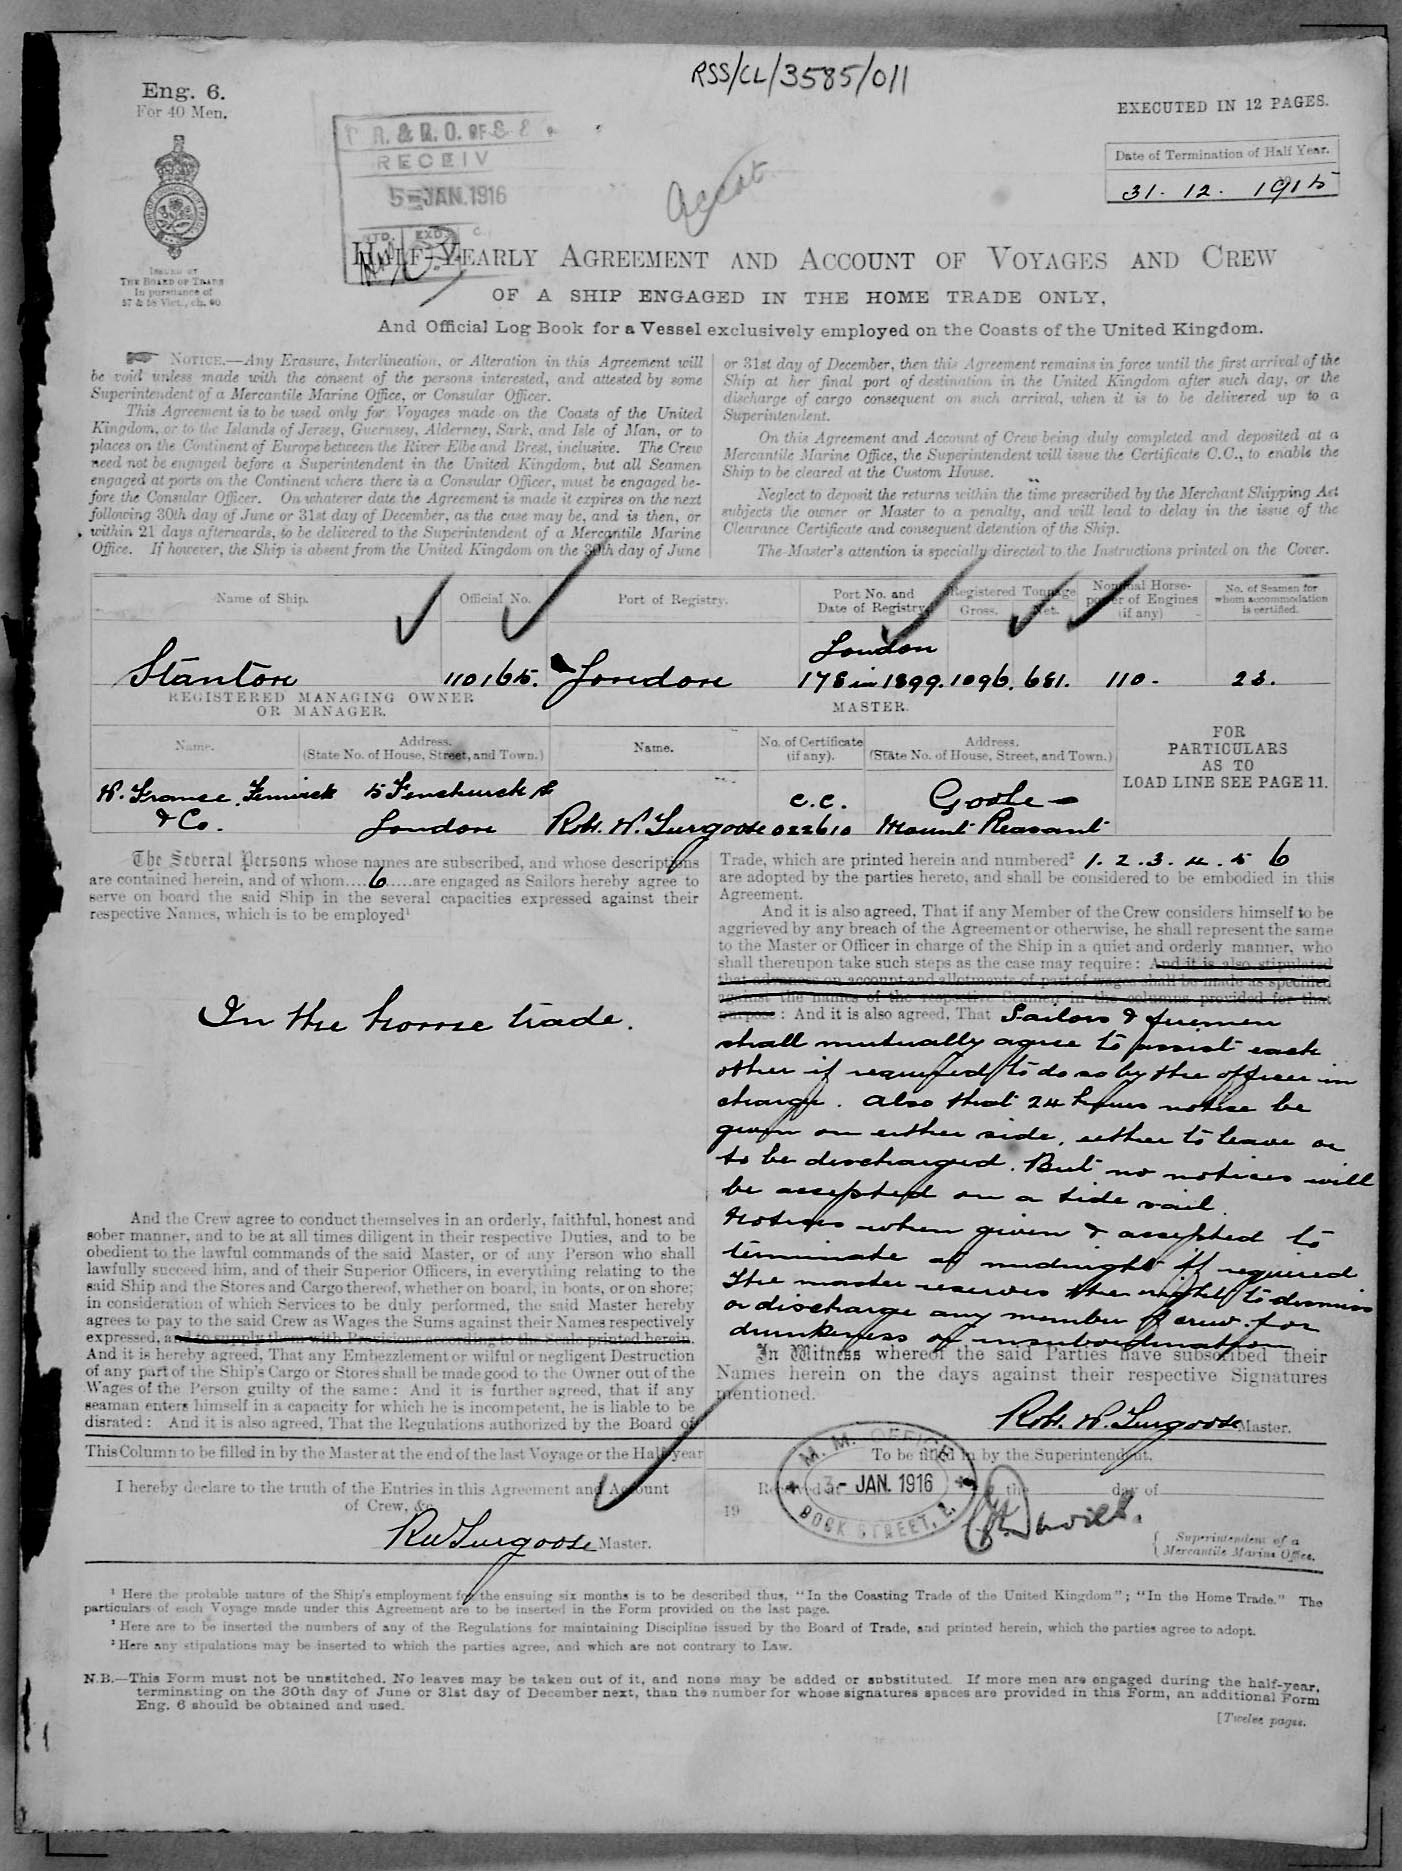 RSS/CL/3585/011
Eng. 6.
For 40 Men.
EXECUTED IN 12 PAGES.
R. & R. O. OF S &
RECEIV
5 - JAN. 1916
EXD.
Date of Termination of Half Year.
31. 12. 1915
ISSUED BY
THE BOARD OF TRADE
In pursuance of
57 & 58 Vict., ch. 60
HALF-YEARLY AGREEMENT AND ACCOUNT OF VOYAGES AND CREW
OF A SHIP ENGAGED IN THE HOME TRADE ONLY,
And Official Log Book for a Vessel exclusively employed on the Coasts of the United Kingdom.
NOTICE.—Any Erasure, Interlineation, or Alteration in this Agreement will
be void unless made with the consent of the persons interested, and attested by some
Superintendent of a Mercantile Marine Office, or Consular Officer.
This Agreement is to be used only for Voyages made on the Coasts of the United
Kingdom, or to the Islands of Jersey, Guernsey, Alderney, Sark, and Isle of Man, or to
places on the Continent of Europe between the River Elbe and Brest, inclusive. The Crew
need not be engaged before a Superintendent in the United Kingdom, but all Seamen
engaged at ports on the Continent where there is a Consular Officer, must be engaged be-
fore the Consular Officer. On whatever date the Agreement is made it expires on the next
following 30th day of June or 31st day of December, as the case may be, and is then, or
within 21 days afterwards, to be delivered to the Superintendent of a Mercantile Marine
Office. If however, the Ship is absent from the United Kingdom on the 30th day of June
or 31st day of December, then this Agreement remains in force until the first arrival of the
Ship at her final port of destination in the United Kingdom after such day, or the
discharge of cargo consequent on such arrival, when it is to be delivered up to a
Superintendent.
On this Agreement and Account of Crew being duly completed and deposited at a
Mercantile Marine Office, the Superintendent will issue the Certificate C.C., to enable the
Ship to be cleared at the Custom House.
Neglect to deposit the returns within the time prescribed by the Merchant Shipping Act
subjects the owner or Master to a penalty, and will lead to delay in the issue of the
Clearance Certificate and consequent detention of the Ship.
The Master's attention is specially directed to the Instructions printed on the Cover.
Name of Ship. Official No. Port of Registry. Port No. and Date of Registry. Registered Tonnage Gross. Net. Nominal Horse-power of Engines (if any) No. of Seamen for whom accommodation is certified.
Stanton 110165. London London 178 in 1899. 1096. 681. 110. 23.
REGISTERED MANAGING OWNER
OR MANAGER.
MASTER.
Name. Address. (State No. of House, Street, and Town.) Name. No. of Certificate (if any). Address. (State No. of House, Street, and Town.)
FOR
PARTICULARS
AS TO
LOAD LINE SEE PAGE 11.
W. France, Fenwick 5 Fenchurch St c.c. Goole
& Co. London Robt. W. Surgoose 022610 Mount Pleasant
The Several Persons whose names are subscribed, and whose descriptions
are contained herein, and of whom....6.....are engaged as Sailors hereby agree to
serve on board the said Ship in the several capacities expressed against their
respective Names, which is to be employed¹
In the home trade.
And the Crew agree to conduct themselves in an orderly, faithful, honest and
sober manner, and to be at all times diligent in their respective Duties, and to be
obedient to the lawful commands of the said Master, or of any Person who shall
lawfully succeed him, and of their Superior Officers, in everything relating to the
said Ship and the Stores and Cargo thereof, whether on board, in boats, or on shore;
in consideration of which Services to be duly performed, the said Master hereby
agrees to pay to the said Crew as Wages the Sums against their Names respectively
expressed, and to supply them with Provisions according to the Scale printed herein.
And it is hereby agreed, That any Embezzlement or wilful or negligent Destruction
of any part of the Ship's Cargo or Stores shall be made good to the Owner out of the
Wages of the Person guilty of the same: And it is further agreed, that if any
seaman enters himself in a capacity for which he is incompetent, he is liable to be
disrated: And it is also agreed, That the Regulations authorized by the Board of
Trade, which are printed herein and numbered² 1. 2. 3. 4. 5 6
are adopted by the parties hereto, and shall be considered to be embodied in this
Agreement.
And it is also agreed, That if any Member of the Crew considers himself to be
aggrieved by any breach of the Agreement or otherwise, he shall represent the same
to the Master or Officer in charge of the Ship in a quiet and orderly manner, who
shall thereupon take such steps as the case may require: And it is also stipulated
that advances on account and allotments of part of wages shall be made as specified
against the names of the respective Seamen in the columns provided for that
purpose: And it is also agreed, That Sailors & firemen
shall mutually agree to assist each
other if required to do so by the officer in
charge. Also that 24 hours notice be
given on either side, either to leave or
to be discharged. But no notices will
be accepted on a tide sail.
Notices when given & accepted to
terminate at midnight if required
The master reserves the right to dismiss
or discharge any member of crew for
drunkeness or insubordination
In Witness whereof the said Parties have subscribed their
Names herein on the days against their respective Signatures
mentioned.
Robt. W. Surgoose Master.
This Column to be filled in by the Master at the end of the last Voyage or the Half-year
To be filled in by the Superintendent.
I hereby declare to the truth of the Entries in this Agreement and Account
of Crew, &c.
RW Surgoose Master.
Received at the day of
19
M. M. OFFICE
3 - JAN. 1916
DOCK STREET, E.
Superintendent of a
Mercantile Marine Office.
¹ Here the probable nature of the Ship's employment for the ensuing six months is to be described thus, "In the Coasting Trade of the United Kingdom"; "In the Home Trade." The
particulars of each Voyage made under this Agreement are to be inserted in the Form provided on the last page.
² Here are to be inserted the numbers of any of the Regulations for maintaining Discipline issued by the Board of Trade, and printed herein, which the parties agree to adopt.
³ Here any stipulations may be inserted to which the parties agree, and which are not contrary to Law.
N.B.—This Form must not be unstitched. No leaves may be taken out of it, and none may be added or substituted. If more men are engaged during the half-year,
terminating on the 30th day of June or 31st day of December next, than the number for whose signatures spaces are provided in this Form, an additional Form
Eng. 6 should be obtained and used.
[Twelve pages.